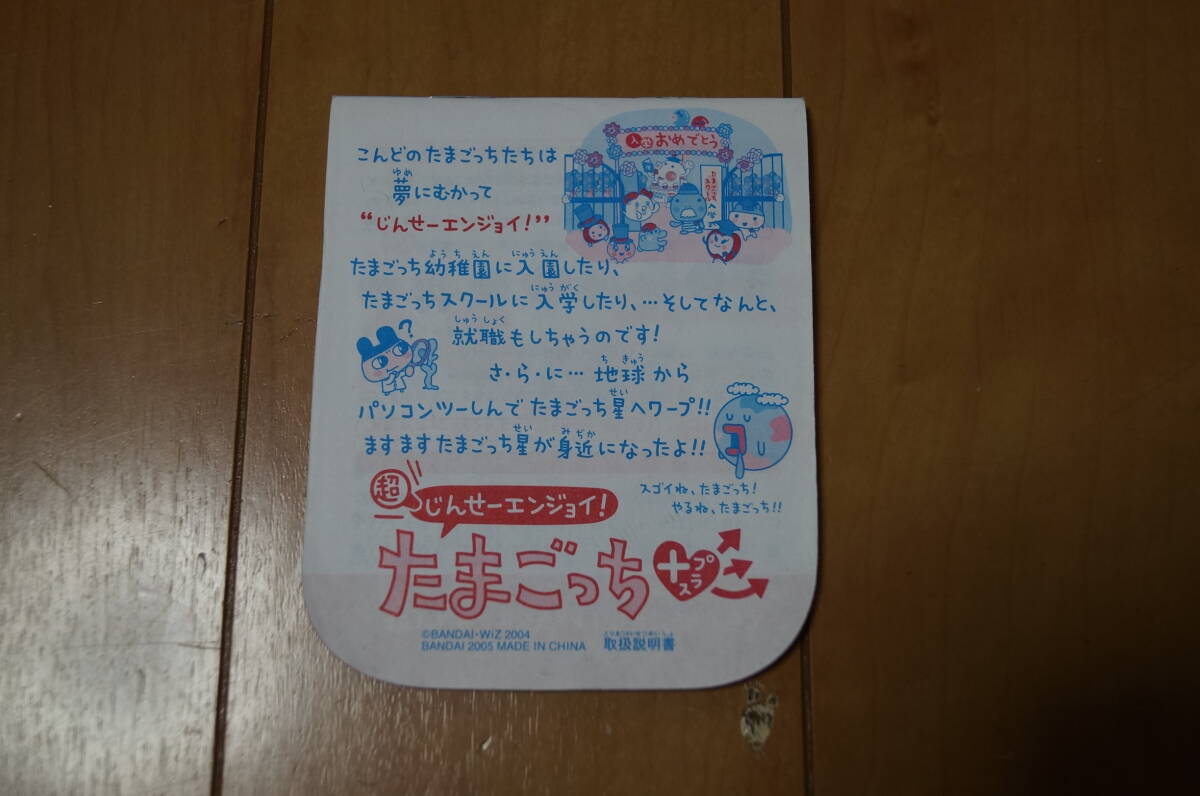 入学おめでとう
たまごっちスクール入学式
こんどのたまごっちたちは
夢にむかって
“じんせーエンジョイ!”
たまごっち幼稚園に入園したり、
たまごっちスクールに入学したり、…そしてなんと、
就職もしちゃうのです!
?
さ・ら・に…地球から
パソコンツーしんでたまごっち星へワープ!!
ますますたまごっち星が身近になったよ!!
スゴイね、たまごっち!
やるね、たまごっち!!
超じんせーエンジョイ!
たまごっち+プラス
©BANDAI・WiZ 2004
BANDAI 2005 MADE IN CHINA
取扱説明書